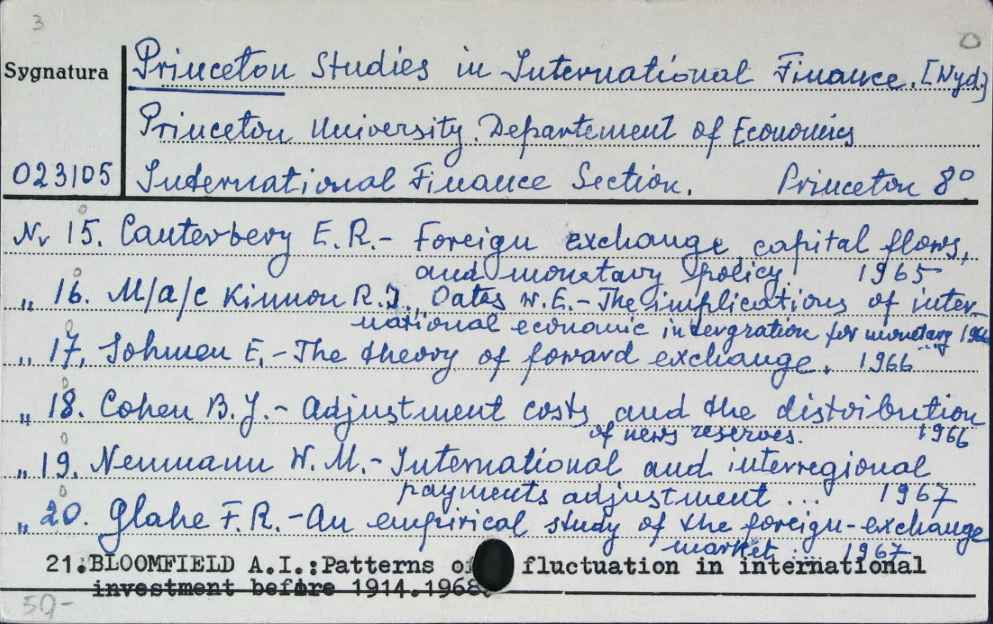 3
Sygnatura Princeton Studies in International Finance. [Wyd.]
Princeton University. Departement of Economics
023105 International Finance Section. Princeton 8°
Nr 15. Canterbery E.R.- Foreign exchange capital flows,
and monetary policy 1965
„ 16. M/a/c Kinnon R.I., Oates W.E.- The implications of inter-
national economic intergration for monetary 1966
„ 17. Sohmen E.- The theory of forward exchange. 1966
„ 18. Cohen B.J.- Adjustment costs and the distribution
of news reserves. 1966
„ 19. Neumann W.M.- International and interregional
payments adjustment ... 1967
„ 20. Glahe F.R.- An empirical study of the foreign-exchange
market ... 1967
21.BLOOMFIELD A.I.:Patterns of fluctuation in international
investment before 1914.1968.
50-